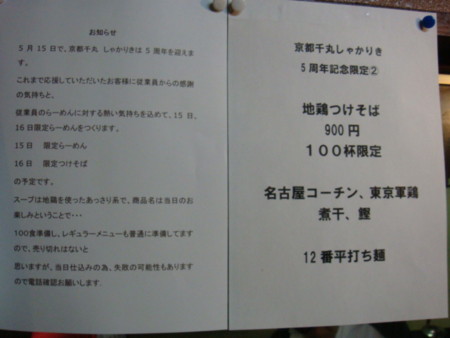 お知らせ
5月15日で、京都千丸 しゃかりきは5周年を迎えます。
これまで応援していただいたお客様に従業員からの感謝
の気持ちと、
従業員のらーめんに対する熱い気持ちを込めて、15日、
16日限定らーめんをつくります。
15日 限定らーめん
16日 限定つけそば
の予定です。
スープは地鶏を使ったあっさり系で、商品名は当日のお
楽しみということで・・・
100食準備し、レギュラーメニューも普通に準備してます
ので、売り切れはないと
思いますが、当日仕込みの為、失敗の可能性もあります
ので電話確認お願いします.
京都千丸しゃかりき
5周年記念限定②
地鶏つけそば
900円
100杯限定
名古屋コーチン、東京軍鶏
煮干、鰹
12番平打ち麺